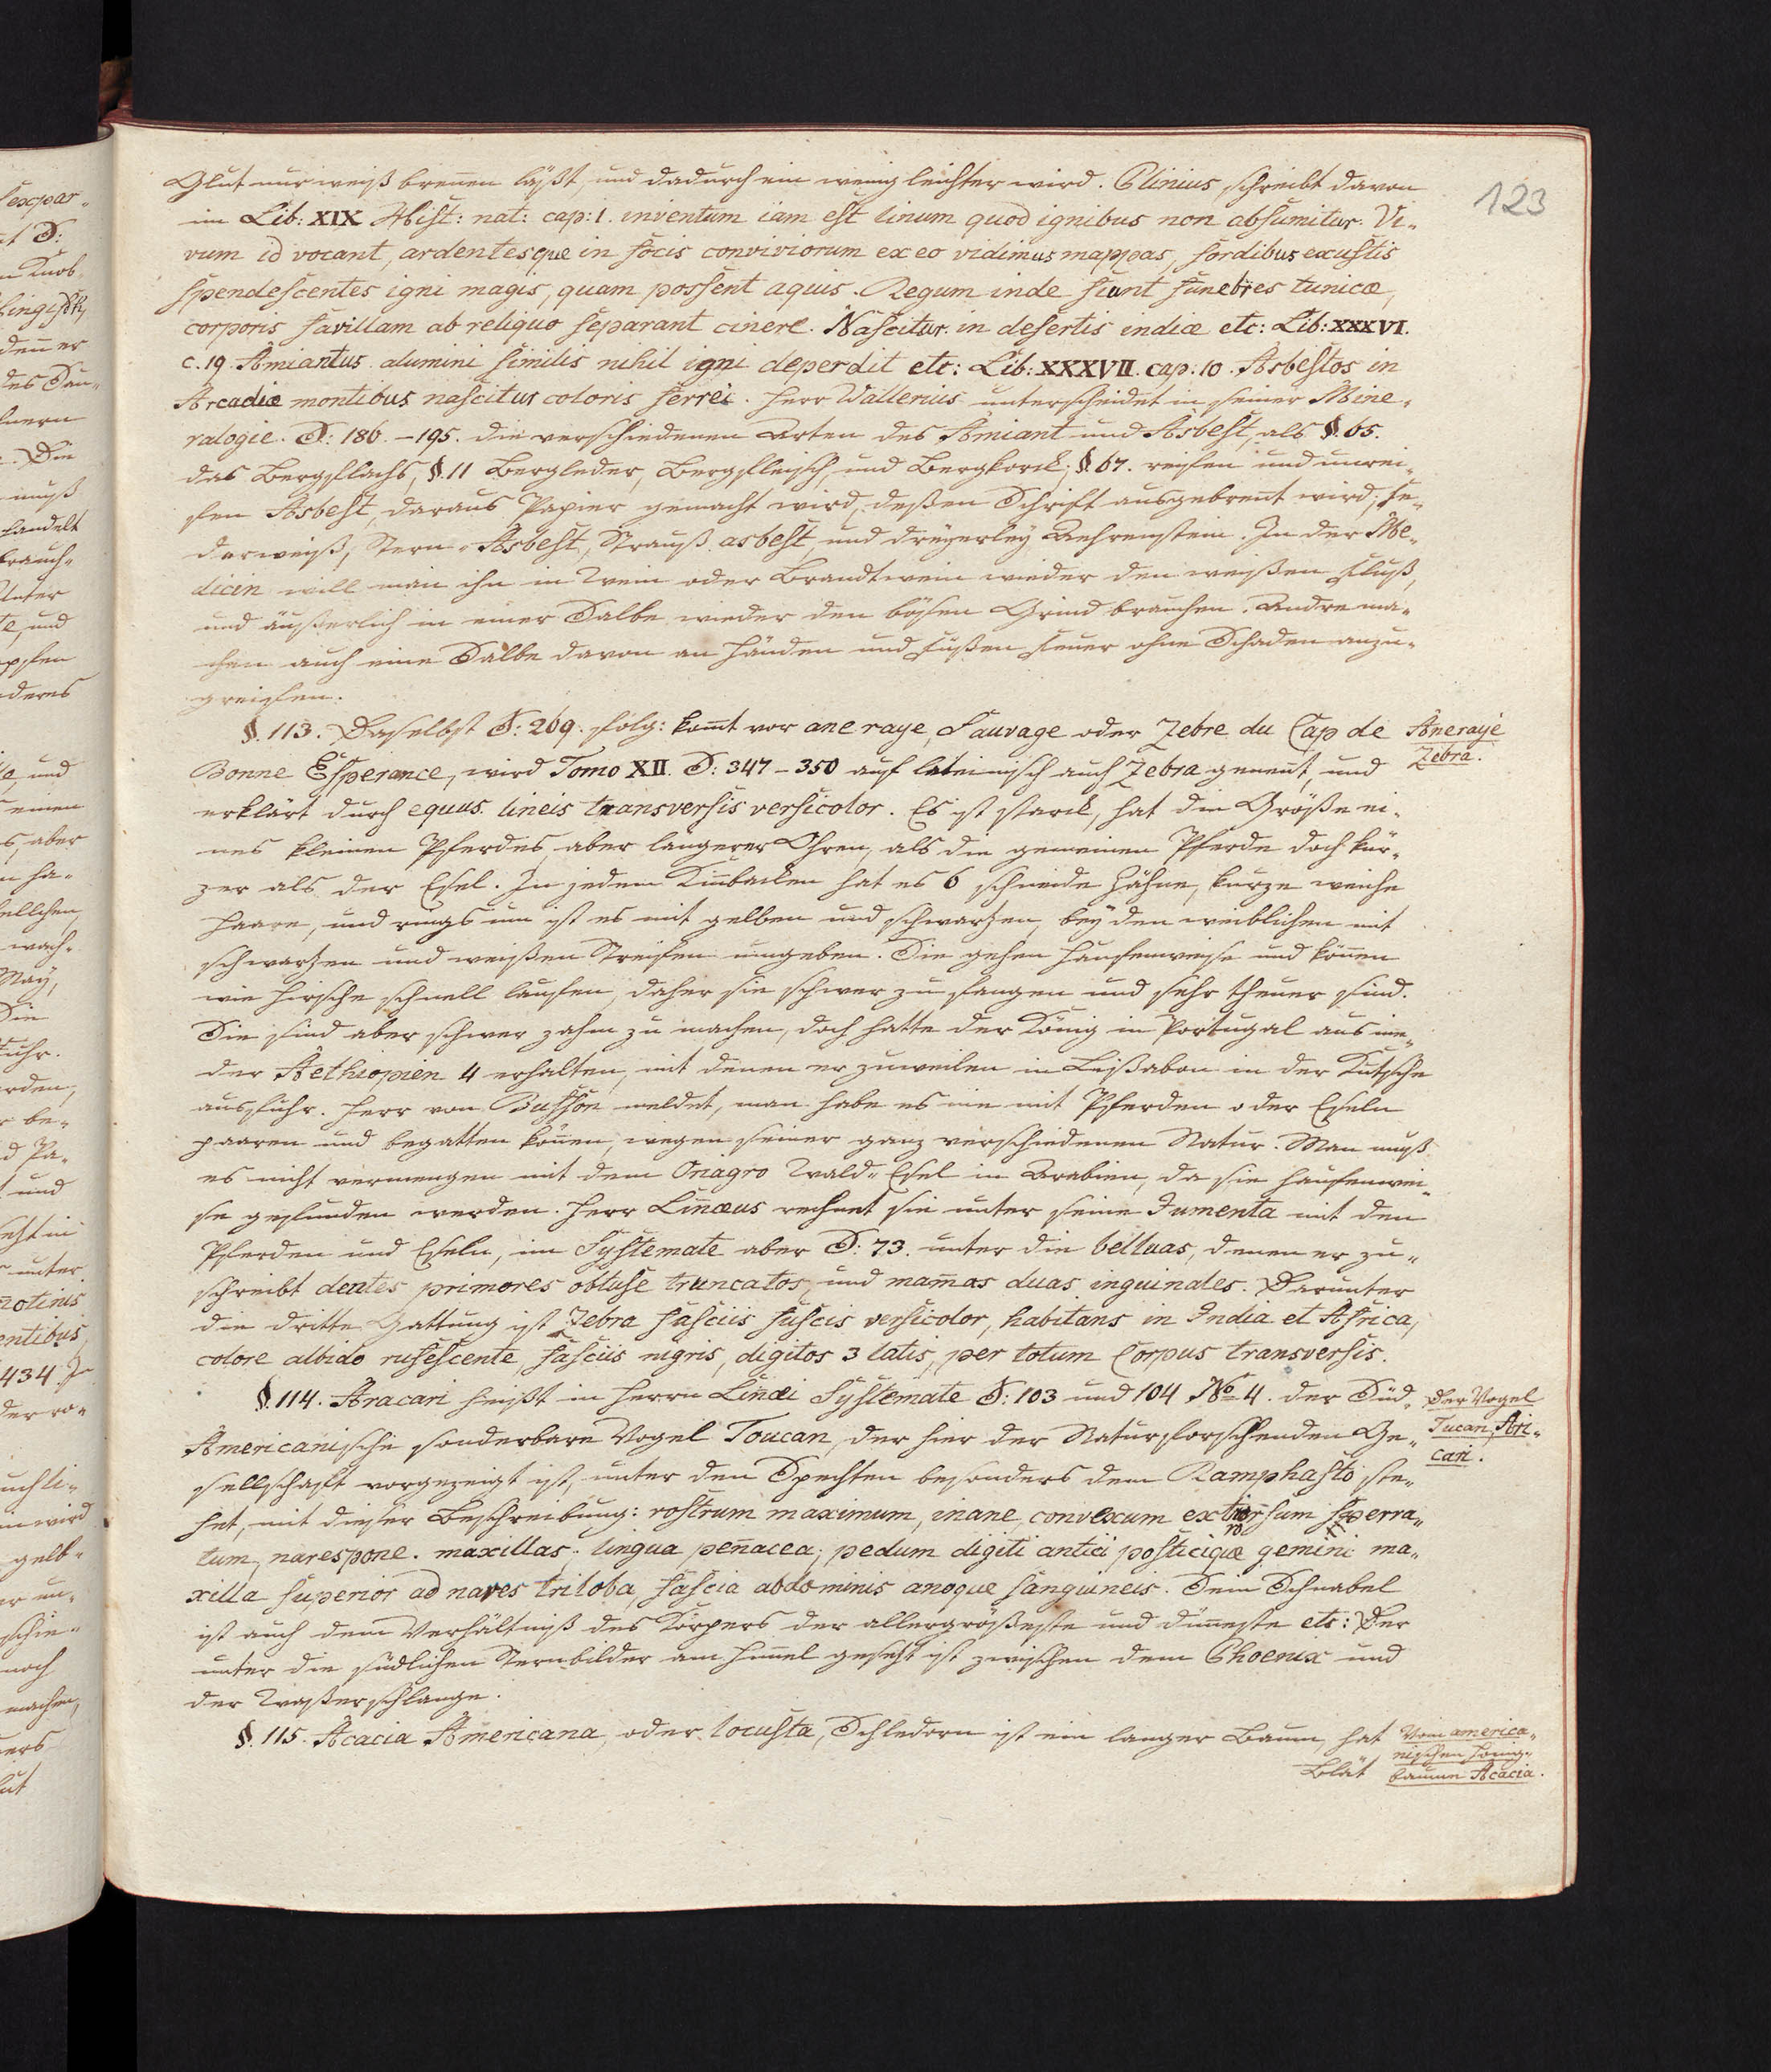 123
Glut nur weiß breñen läßt, und dadurch ein wenig leichter wird. Plinius, schreibt davon
im Lib: XIX Hist: nat: cap: 1. inventum iam est linum quod ignibus non absumitur. Vi-
vum id vocant, ardentesque in focis conviviorum ex eo vidimus mappas, sordibus exustis
spendescentes igni magis, quam possent aquis. Regum inde fiunt funebres tunicæ,
corporis favillam ab reliquo separant cinere. Nascitur in desertis indiæ etc: Lib: XXXVI.
c. 19. Amiantus alumini similis nihil igni deperdit etc: Lib: XXXVII. cap: 10. Asbestos in
Arcadiæ montibus nascitur coloris ferrei. Herr Wallerius unterscheidet in seiner Mine-
ralogie. S: 186. – 195. die verschiedenen Arten des Amiant und Asbest, als §. 65.
das Bergflachs, §. 11 Bergleder, Bergfleisch, und Bergkorck; §. 67. reifen und unrei-
fen Asbest, daraus Papier gemacht wird, deßen Schrift ausgebrent wird; Fe-
derweiß, Stern-Asbest, Strauß asbest und dreyerley Aehrenstein. In der Me-
dicin will man ihn in Wein oder Brandtwein wieder den weißen Fluß,
und äußerlich in einer Salbe wieder den bösen Grind brauchen. Andre ma-
chen auch eine Salbe davon an Händen und Füßen Feuer ohne Schaden anzu-
greifen.
§. 113. Daselbst S: 269. folg: komt vor ane raye, Sauvage oder Zebre du Cap de
Aneraye
Zebra.
Bonne Esperance, wird Tomo XII. S: 347 – 350 auf lateinisch auch Zebra geneñt, und
erklärt durch equus lineis transversis versicolor. Es ist starck, hat die Größe ei-
nes kleinen Pferdes, aber langerer Ohren, als die gemeinen Pferde doch kür-
zer als der Esel. In jedem Kiñbacken hat es 6 schneide Zähne, kurze weiche
Haare, und rings um ist es mit gelben und schwarzen, bey den weiblichen mit
schwarzen und weißen Streifen umgeben. Sie gehen haufenweise und köñen
wie Hirsche schnell laufen, daher sie schwer zu fangen und sehr theuer sind.
Sie sind aber schwer zahm zu machen, doch hatte der König in Portugal aus nie-
der Aethiopien 4 erhalten, mit denen er zuweilen in Lißabon in der Kutsche
ausfuhr. Herr von Buffon meldet, man habe es nie mit Pferden oder Eseln
paaren und begatten köñen, wegen seiner ganz verschiedenen Natur. Man muß
es nicht vermengen mit dem Onagro Wald-Esel in Arabien, da sie haufenwei-
se gefunden werden. Herr Liñæus rechnet sie unter seine Jumenta mit den
Pferden und Eseln, im Systemate aber S: 73. unter die belluas, denen er zu-
schreibt dentes primores obtuse truncatos, und mam̃as duas inguinales. Darunter
die dritte Gattung ist Zebra fasciis fuscis versicolor, habitans in India et Africa,
colore albido rufescente, fasciis nigris, digitos 3 latis, per totum Corpus transversis.
§. 114. Aracari heißt in Herrn Liñæi Systemate S: 103 und 104 No 4. der Süd-
Der Vogel
Tucan, Ari-
cari.
Americanische sonderbare Vogel Toucan, der hier der Naturforschenden Ge-
sellschaft vorgezeigt ist, unter den Spechten besonders dem Ramphasto ste-
het, mit dieser Beschreibung: rostrum maximum, inane, convexum extrorsum serra-
tum, nares pone maxillas; lingua peñacea; pedum digiti antici posticique gemini ma-
xilla superior ad nares triloba, fascia abdominis anoque sanguineis. Sein Schnabel
ist auch dem Verhältniß des Körpers der allergrößeste und düñeste etc: Der
unter die südlichen Sternbilder am Him̃el gesetzt ist zwischen dem Phoenix und
der Waßerschlange.
§. 115. Acacia Americana, oder locusta, Schledorn ist ein langer Baum, hat
Vom america-
nischen Honig-
baume Acacia.
Blät